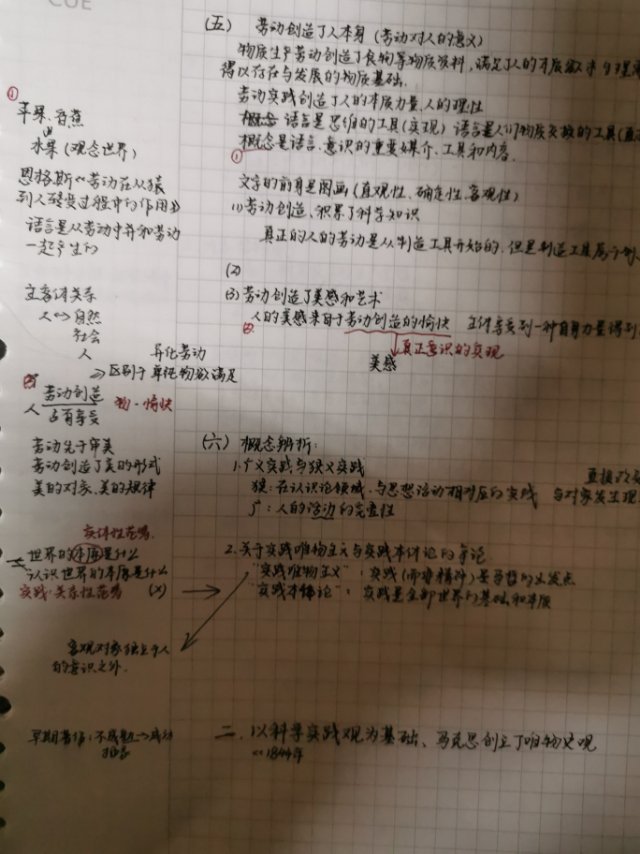 CUE
(五) 劳动创造了人本身(劳动对人的意义)
物质生产劳动创造了食物等物质资料,满足了人的本质欲求
得以存在与发展的物质基础.
劳动实践创造了人的本质力量、人的理性
概念 语言是思维的工具(实现) 语言是人们物质交换的工具(直
①
概念是语言、意识的重要媒介、工具和内容.
文字的前身是图画(直观性、确定性、客观性)
(1)劳动创造、积累了科学知识
真正的人的劳动是从制造工具开始的,但是制造工具属于
(2)
(3)劳动创造了美感和艺术
人的美感来自于劳动创造的愉快 主体享受到一种自身力量得到
②
真正意识的实现
美感
①
苹果、香蕉
水果(观念世界)
恩格斯《劳动在从猿
到人转变过程中的作用》
语言是从劳动中并和劳动
一起产生的
主客体关系
人⇔自然
社会
人
异化劳动
⇒区别于单纯物欲满足
②
劳动创造
人 占有享受
物·愉快
劳动先于审美
劳动创造了美的形式
美的对象、美的规律
(六) 概念辨析:
1.广义实践与狭义实践
狭:在认识论领域,与思想活动相对应的实践
直接改
与对象发生现
广:人的活动的完整性
实体性范畴.
世界的本原是什么
认识世界的本原是什么
实践:关系性范畴 (x)
2.关于实践唯物主义与实践本体论的争论
"实践唯物主义":实践(而非精神)是哲学的出发点
"实践本体论":实践是全部世界的基础和本质
客观对象独立于人
的意识之外.
早期著作:不成熟→成熟
二、以科学实践观为基础、马克思创立了唯物史观
1844年